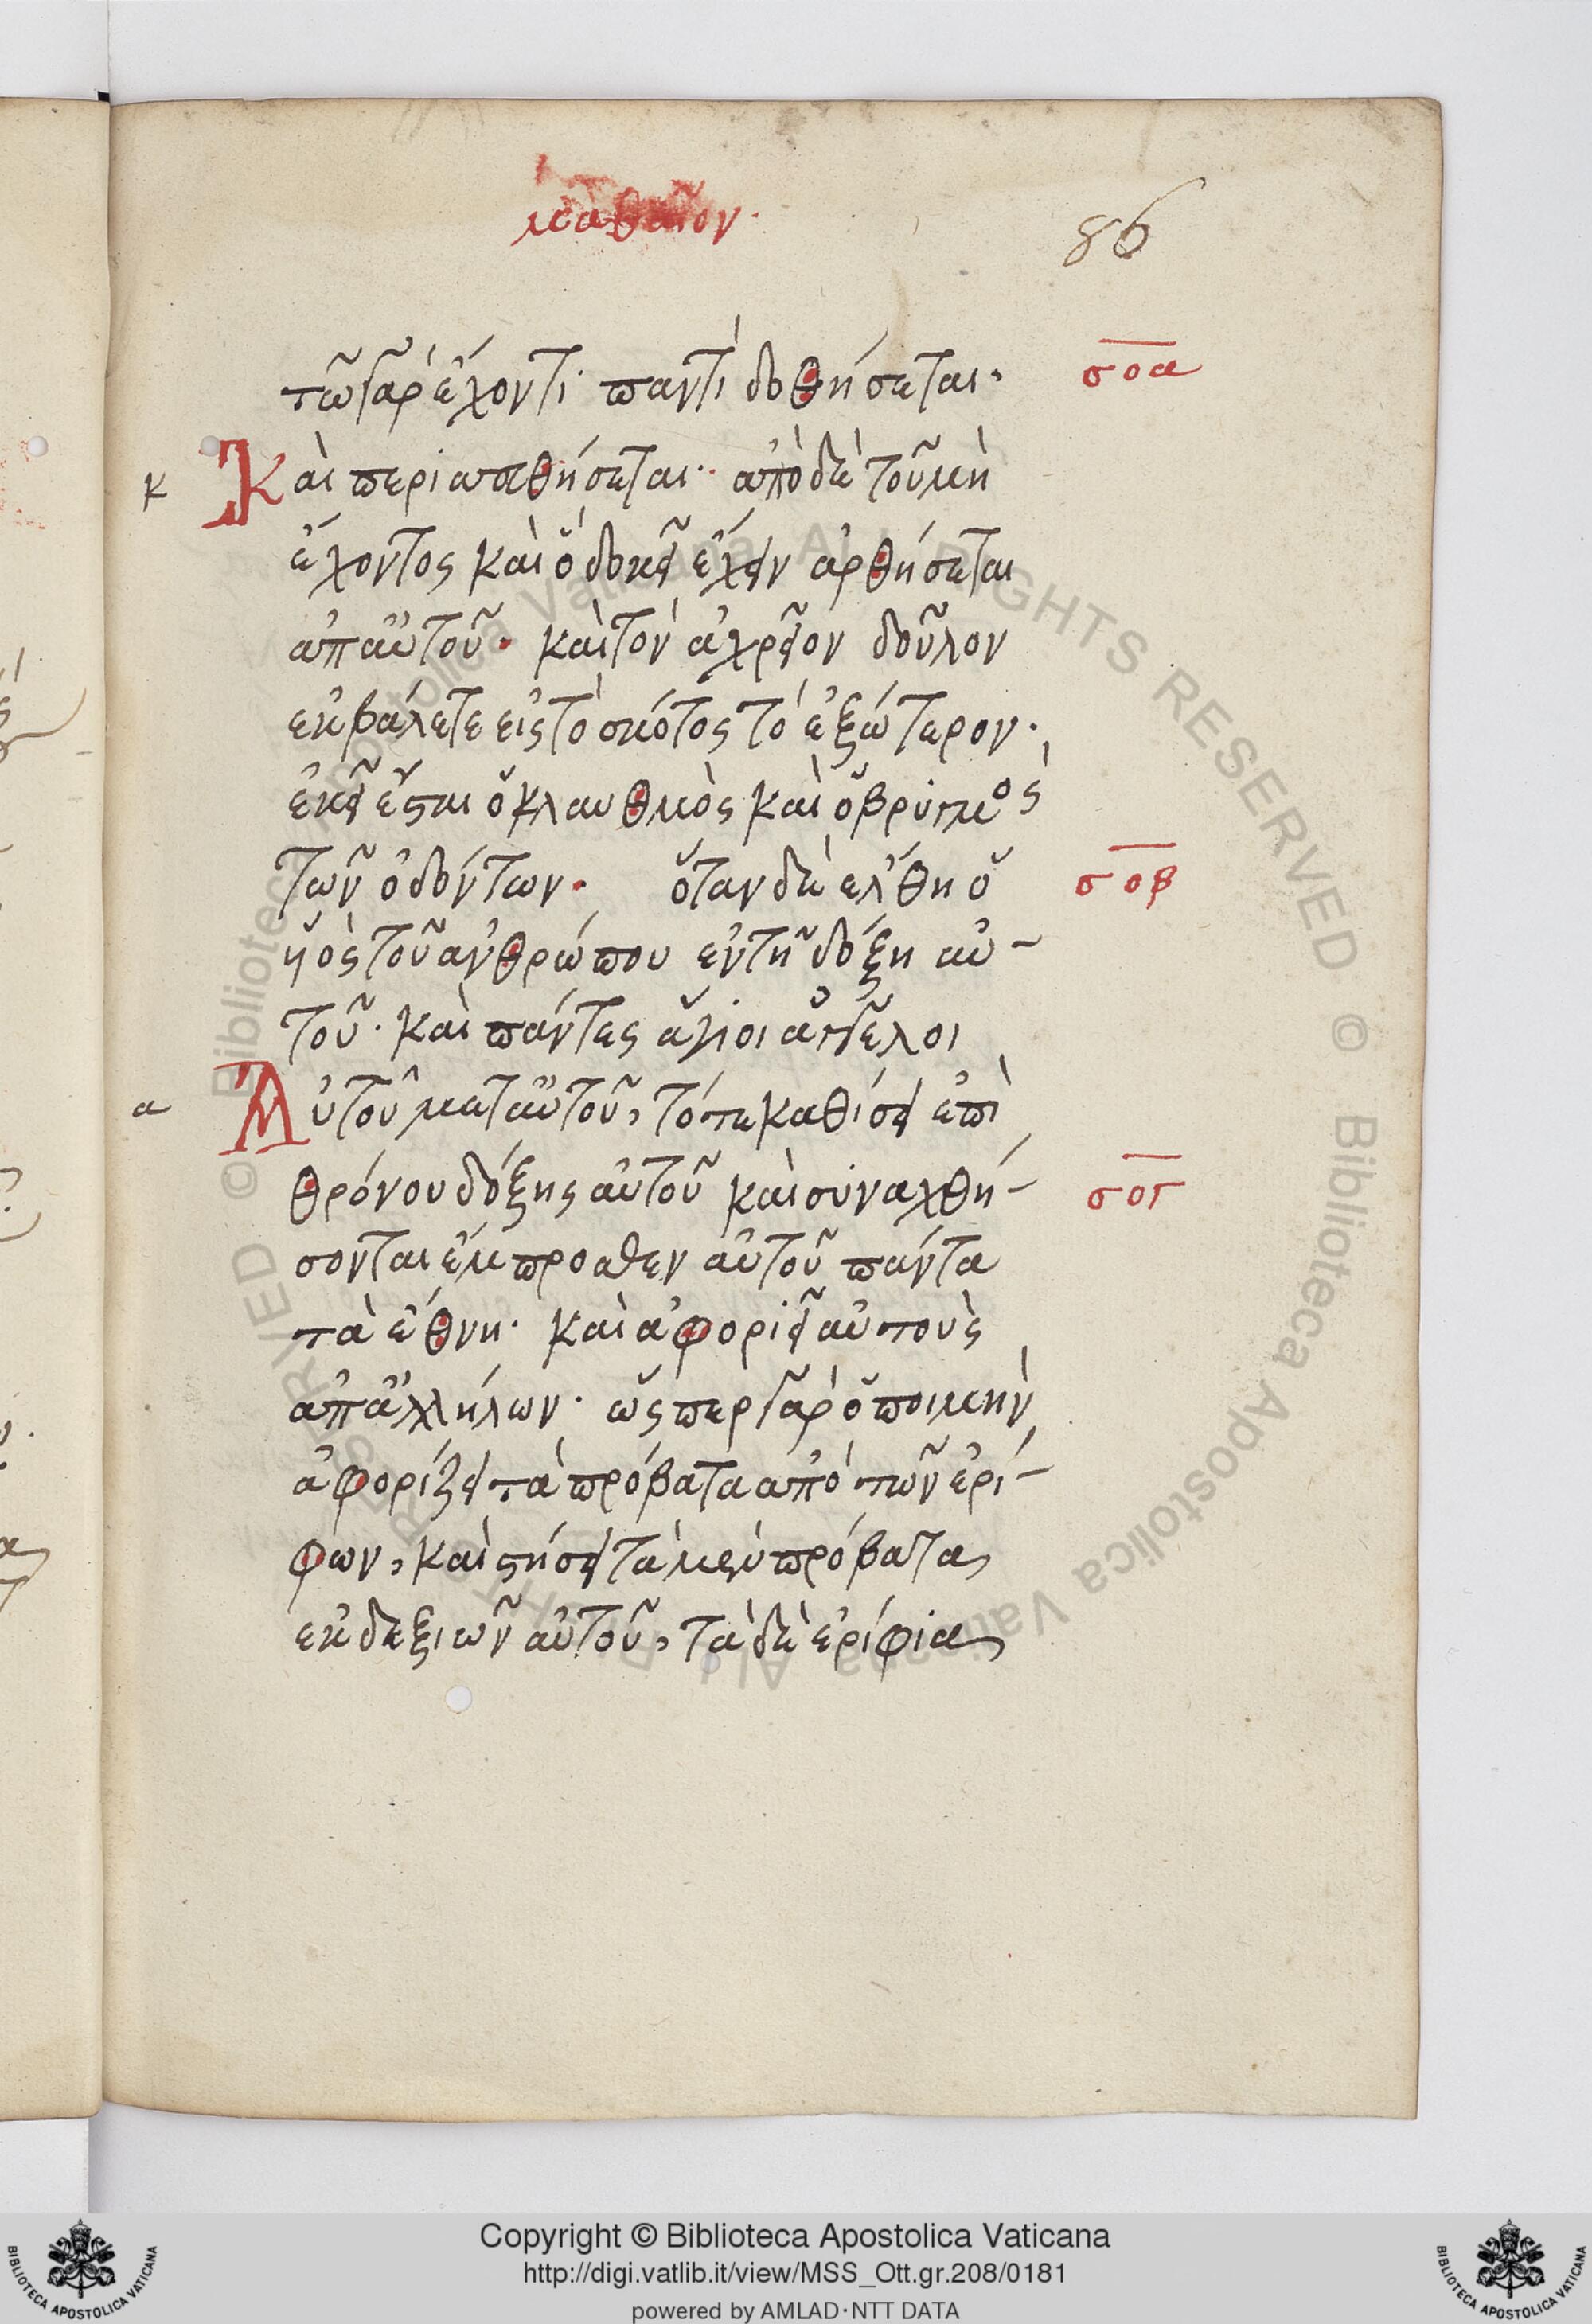 ματθαῖον.
86
τῶ γὰρ ἔχοντι παντὶ δοθήσεται. σοα
κ Καὶ περιασθήσεται. ἀπὸ δὲ τοῦ μὴ
ἔχοντος καὶ ὃ δοκεῖ ἔχειν ἀρθήσεται
ἀπ αὐτοῦ. καὶ τὸν ἀχρεῖον δοῦλον
ἐκβάλετε εἰς τὸ σκότος τὸ ἐξώτερον.
ἐκεῖ ἔσται ὁ κλαυθμὸς καὶ ὁ βρύγμος
τῶν ὀδόντων. ὅταν δὲ ἔλθη ὁ σοβ
ὑιὸς τοῦ ἀνθρώπου ἐν τῆ δόξη αὐ-
τοῦ. καὶ πάντες ἅγιοι ἄγγελοι
α Αὐτοῦ μετ αὐτοῦ, τότε καθίσει ἐπὶ
θρόνου δόξης αὐτοῦ καὶ συναχθή- σογ
σονται ἔμπροσθεν αὐτοῦ πάντα
τὰ ἔθνη. καὶ ἀφοριεῖ αὐτοὺς
ἀπ ἀλλήλων. ὥσπερ γὰρ ὁ ποιμὴν
ἀφορίζει τὰ πρόβατα ἀπὸ τῶν ἐρί-
φων, καὶ στήσει τὰ μὲν πρόβατα
ἐκ δεξιῶν αὐτοῦ, τὰ δὲ ἐρίφια
Copyright © Biblioteca Apostolica Vaticana
http://digi.vatlib.it/view/MSS_Ott.gr.208/0181
powered by AMLAD·NTT DATA
BIBLIOTECA APOSTOLICA VATICANA
BIBLIOTECA APOSTOLICA VATICANA